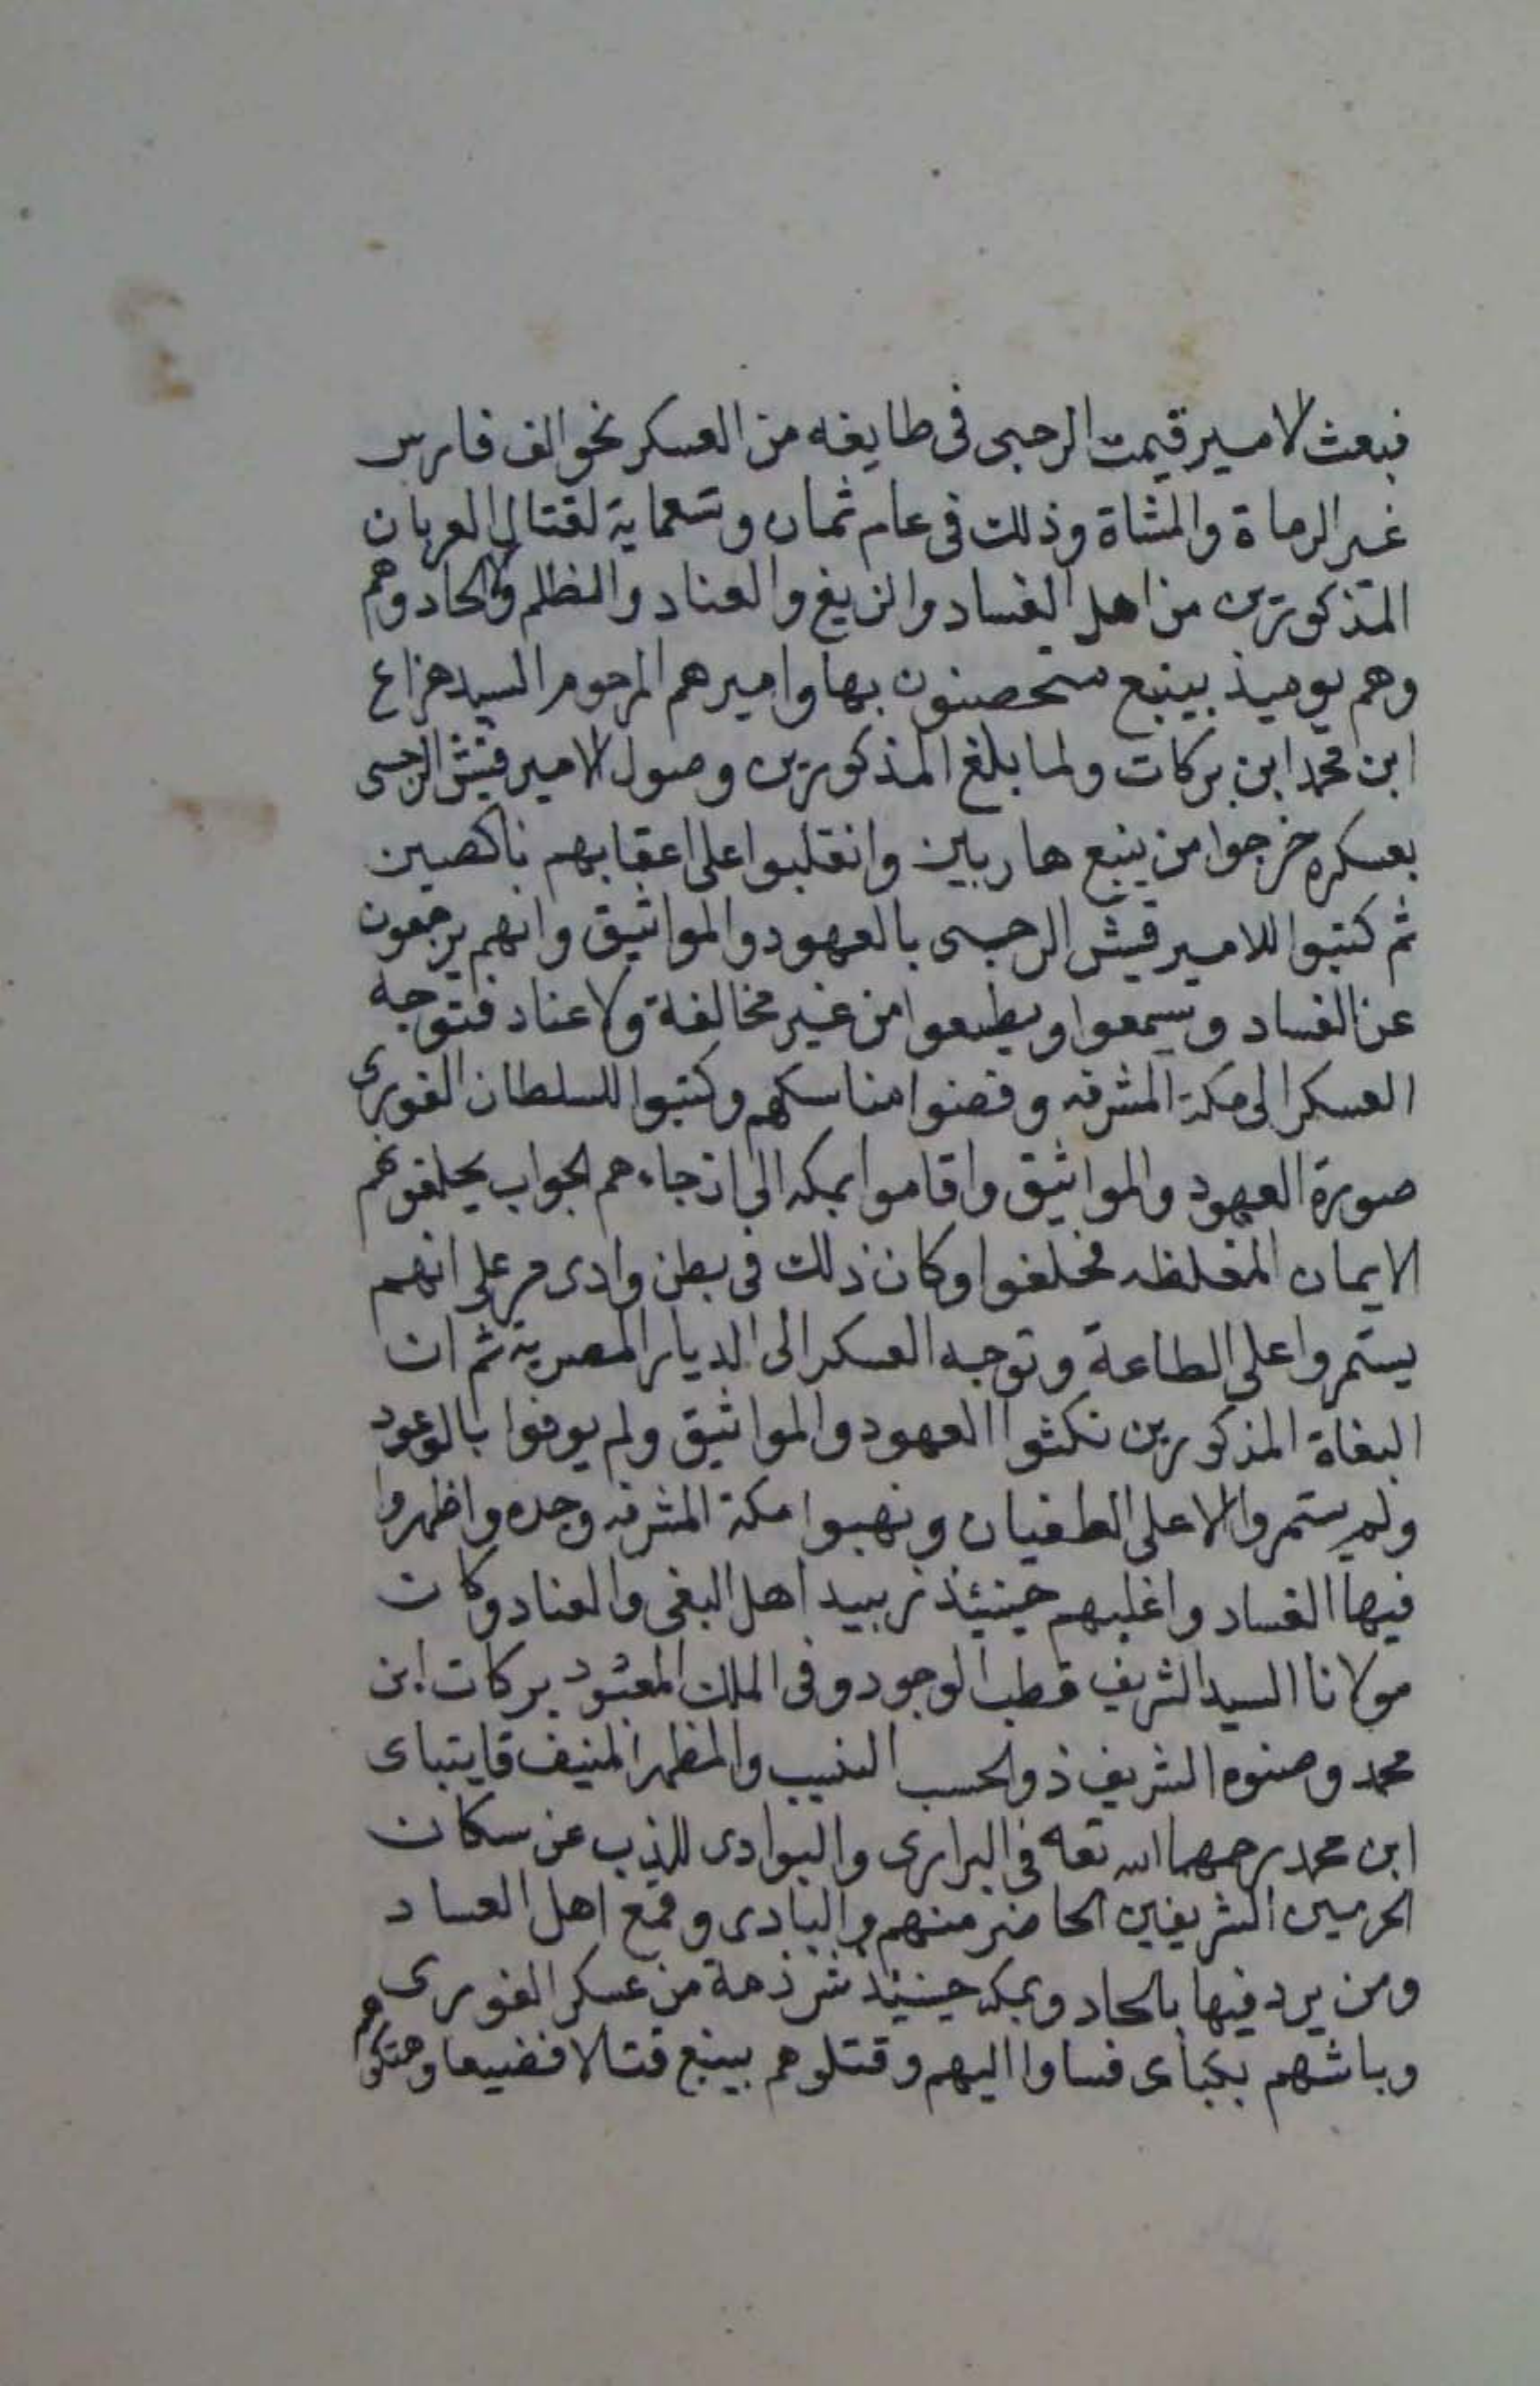 فبعث الامير قيمت الرحبى فى طايفه من العسكر نحو الف فارس
غير الرماة والمشاة وذلك فى عام ثمان وتسعماية لقتال العربان
المذكورين من اهل الفساد والزيغ والعناد والظلم والالحاد وهم
وهم يوميذ بينبع متحصنون بها واميرهم المرحوم السيد هزاع
ابن محمد ابن بركات ولما بلغ المذكورين وصول الامير قيش الرحبى
بعسكره خرجوا من ينبع هاربين وانقلبوا على اعقابهم ناكصين
ثم كتبوا للامير قيش الرحبى بالعهود والمواثيق وانهم يرجعون
عن الفساد ويسمعوا ويطيعوا من غير مخالفة ولا عناد فتوجه
العسكر الى مكة المشرفه وقضوا مناسكهم وكتبوا للسلطان الغورى
صورة العهود والمواثيق واقاموا بمكه الى ان جاءهم الجواب يحلفوهم
الايمان المغلظه فحلفوا وكان ذلك فى بطن وادى مر على انهم
يستمروا على الطاعة وتوجه العسكر الى الديار المصرية ثم ان
البغاة المذكورين نكثوا العهود والمواثيق ولم يوفوا بالوعود
ولم يستمروا الا على الطغيان ونهبوا مكة المشرفه وجده واظهروا
فيها الفساد واغلبهم حينيئذ زبيد اهل البغى والعناد وكان
مولانا السيد الشريف قطب الوجود وفى الملك المعبود بركات ابن
محمد وصنوه الشريف ذو الحسب النسيب والمظهر المنيف قايتباى
ابن محمد رحمهما الله تعه فى البرارى والبوادى للذب عن سكان
الحرمين الشريفين الحاضر منهم والبادى وقمع اهل الفساد
ومن يرد فيها بالحاد وبمكه حينيئذ شرذمة من عسكر الغورى
وباشهم بكباى فساوا اليهم وقتلوهم بينبع قتالا فضيعا وهتكوهم